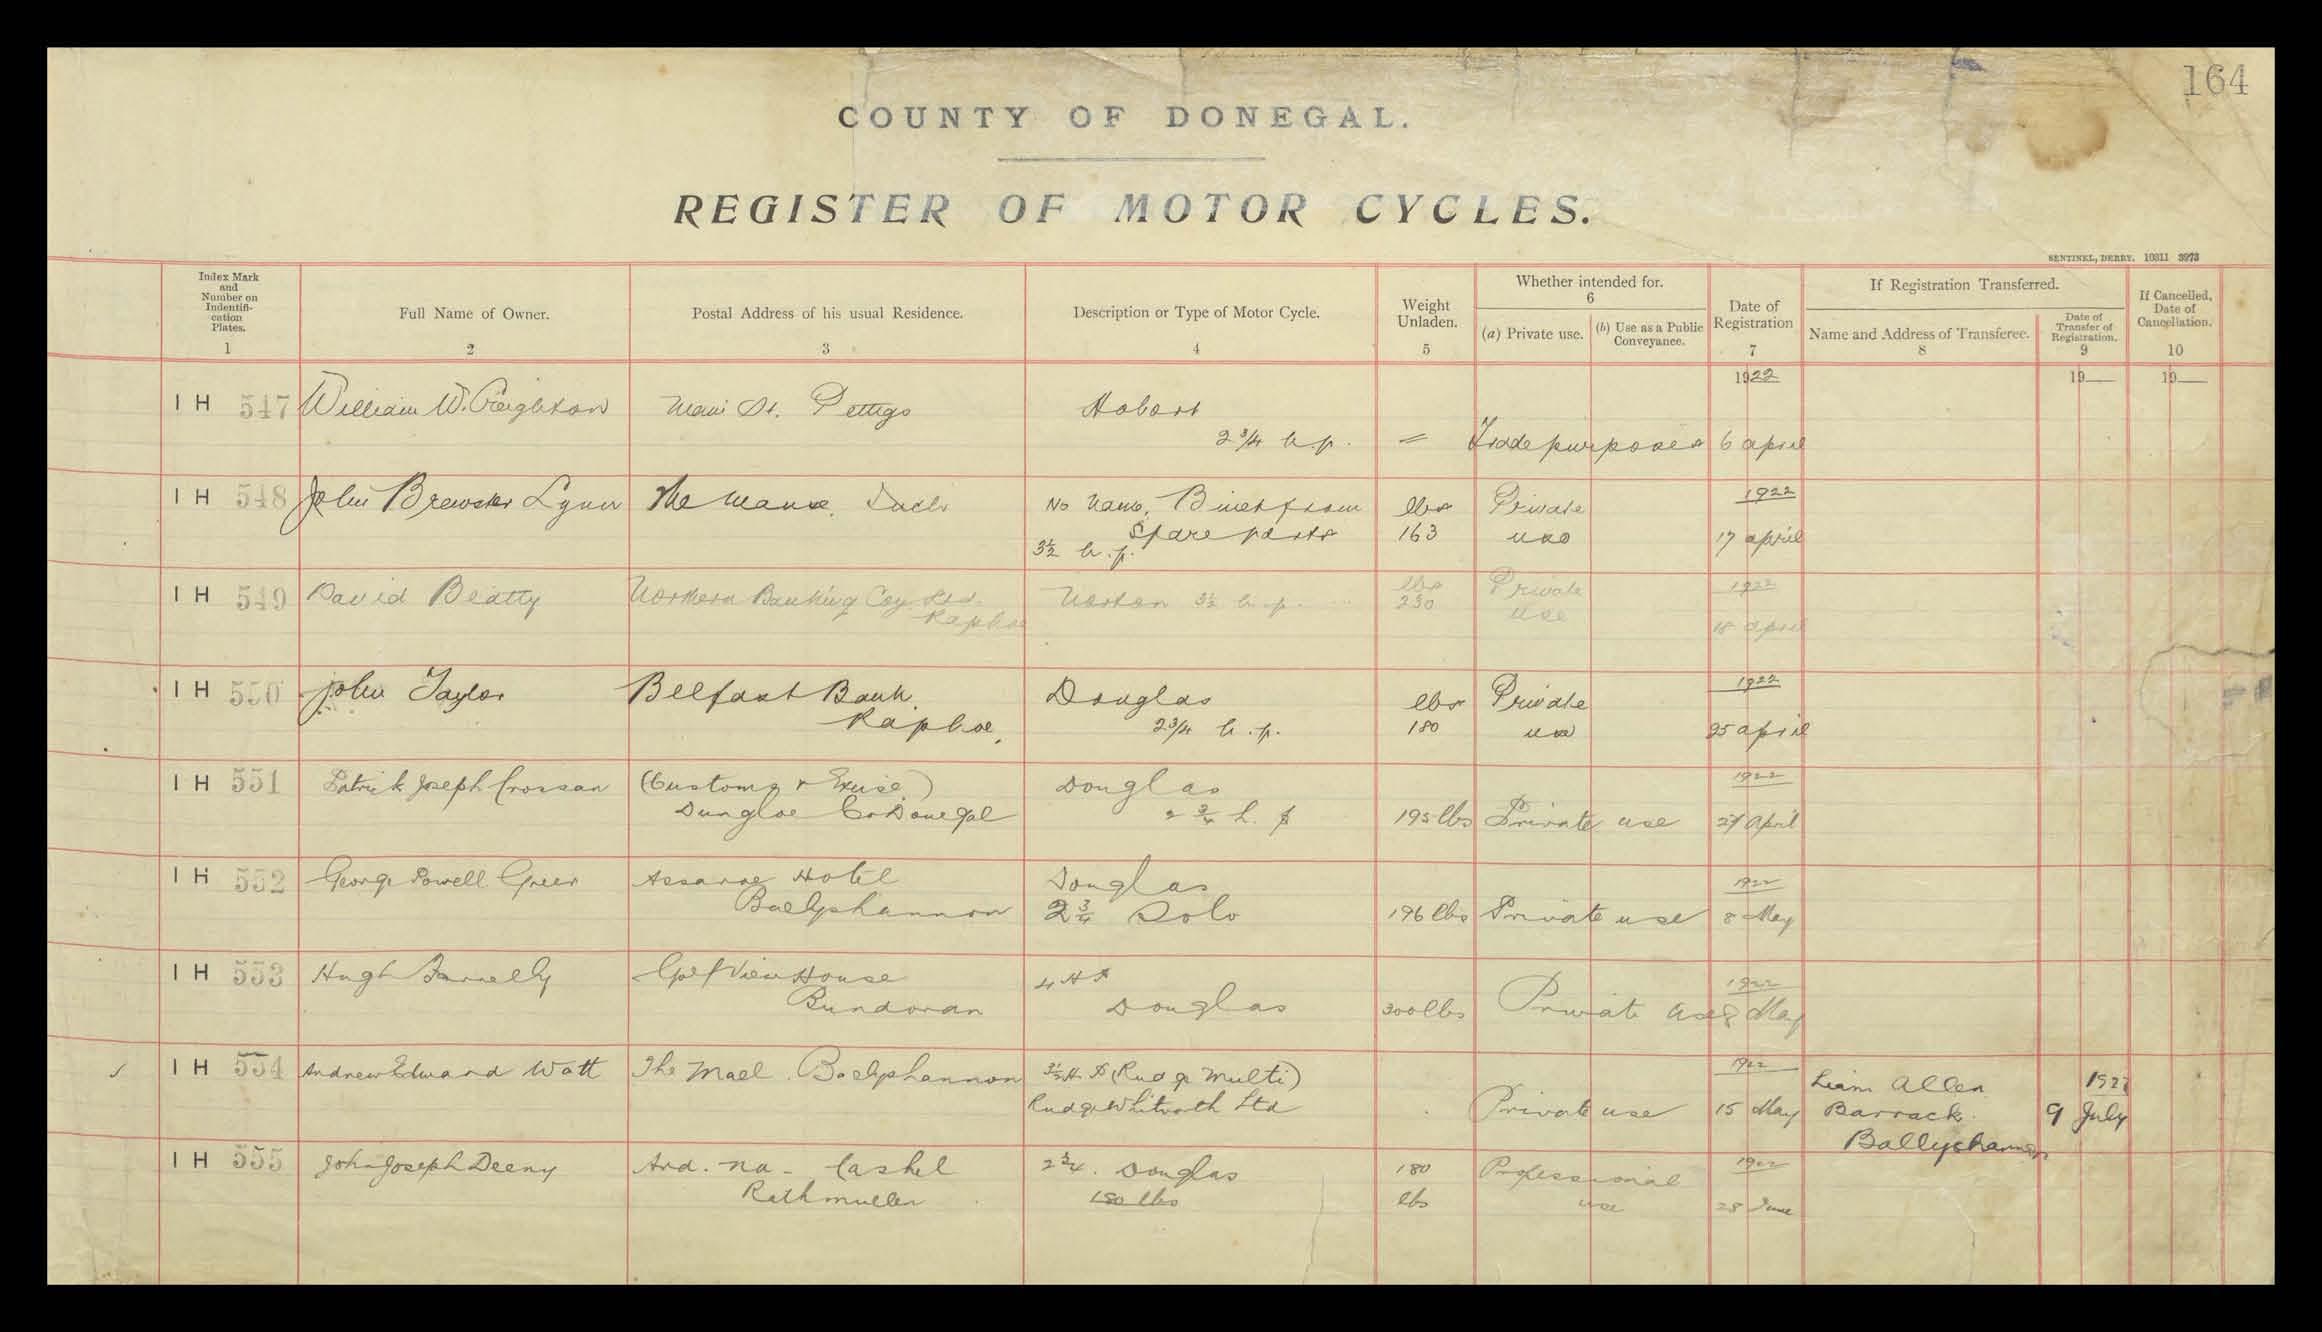 164
COUNTY OF DONEGAL.
REGISTER OF MOTOR CYCLES.
SENTINEL, DERRY. 10311 3973
Index Mark and Number on Indentifi-cation Plates. 1
Full Name of Owner. 2
Postal Address of his usual Residence. 3
Description or Type of Motor Cycle. 4
Weight Unladen. 5
Whether intended for. 6
(a) Private use.
(b) Use as a Public Conveyance.
Date of Registration 7
If Registration Transferred.
Name and Address of Transferee. 8
Date of Transfer of Registration. 9
If Cancelled, Date of Cancellation. 10
1922 19 19
IH 547 William W. Creighton Main St. Pettigo Hobart
2 3/4 h.p. = Trade purposes 6 april
IH 548 John Brewster The Manse, No name, Built from lbs Private 1922
spare parts 163 use 17 april
3½ h.p.
IH 549 David Beatty Northern Banking Coy. Ltd. Norton 3½ h.p. lbs Private 1922
Raphoe 230 use 18 april
IH 550 John Taylor Belfast Bank, Douglas lbs Private 1922
Raphoe, 2 3/4 h.p. 180 use 25 april
IH 551 Patrick Joseph Crossan (Customs & Excise) Douglas 1922
Dungloe Co Donegal 2 3/4 h.p 195 lbs Private use 27 April
IH 552 George Powell Greer Assaroe Hotel Douglas 1922
Ballyshannon 2 3/4 Solo 196 lbs Private use 8 May
IH 553 Hugh Golf View House 4 HP 1922
Bundoran Douglas 300 lbs Private use 8 May
IH 554 Andrew Edward Watt The Mall. Ballyshannon 3½ H.P (Rudge Multi) 1922 Liam Allen 1927
Rudge Whitworth Ltd Private use 15 May Barrack. 9 July
Ballyshannon
IH 555 John Joseph Deeny Ard-na-Cashel 2 3/4. Douglas 180 Professional 1922
Rathmullen 180 lbs lbs use 28 June